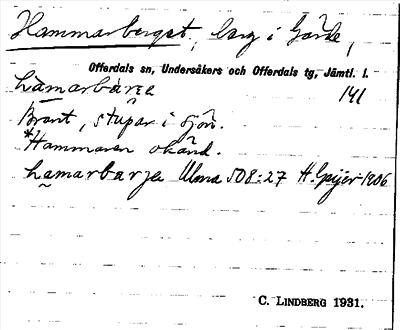 Hammarberget, berg i Gärde,
Offerdals sn, Undersåkers och Offerdals tg, Jämtl. l.
hamarbärɛ 141
Brant, stupar i sjön.
*Hammaren okänd.
hamarbarje Ulma 508:27 H. Geijer 1906
C. LINDBERG 1931.